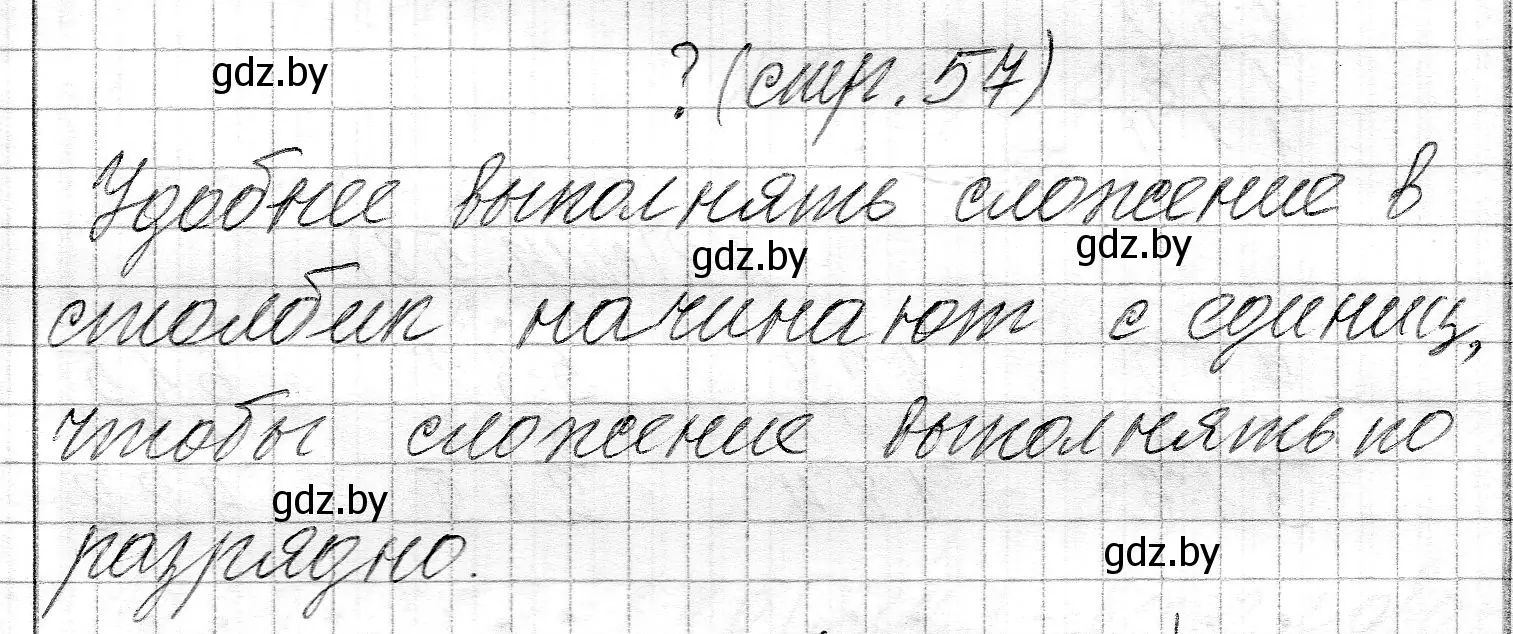 gdz.by
? (стр. 57)
Удобнее выполнять сложение в
gdz.by
gdz.by
столбик начинают с единиц,
чтобы сложение выполнять по
gdz.by
разрядно.
gdz.by